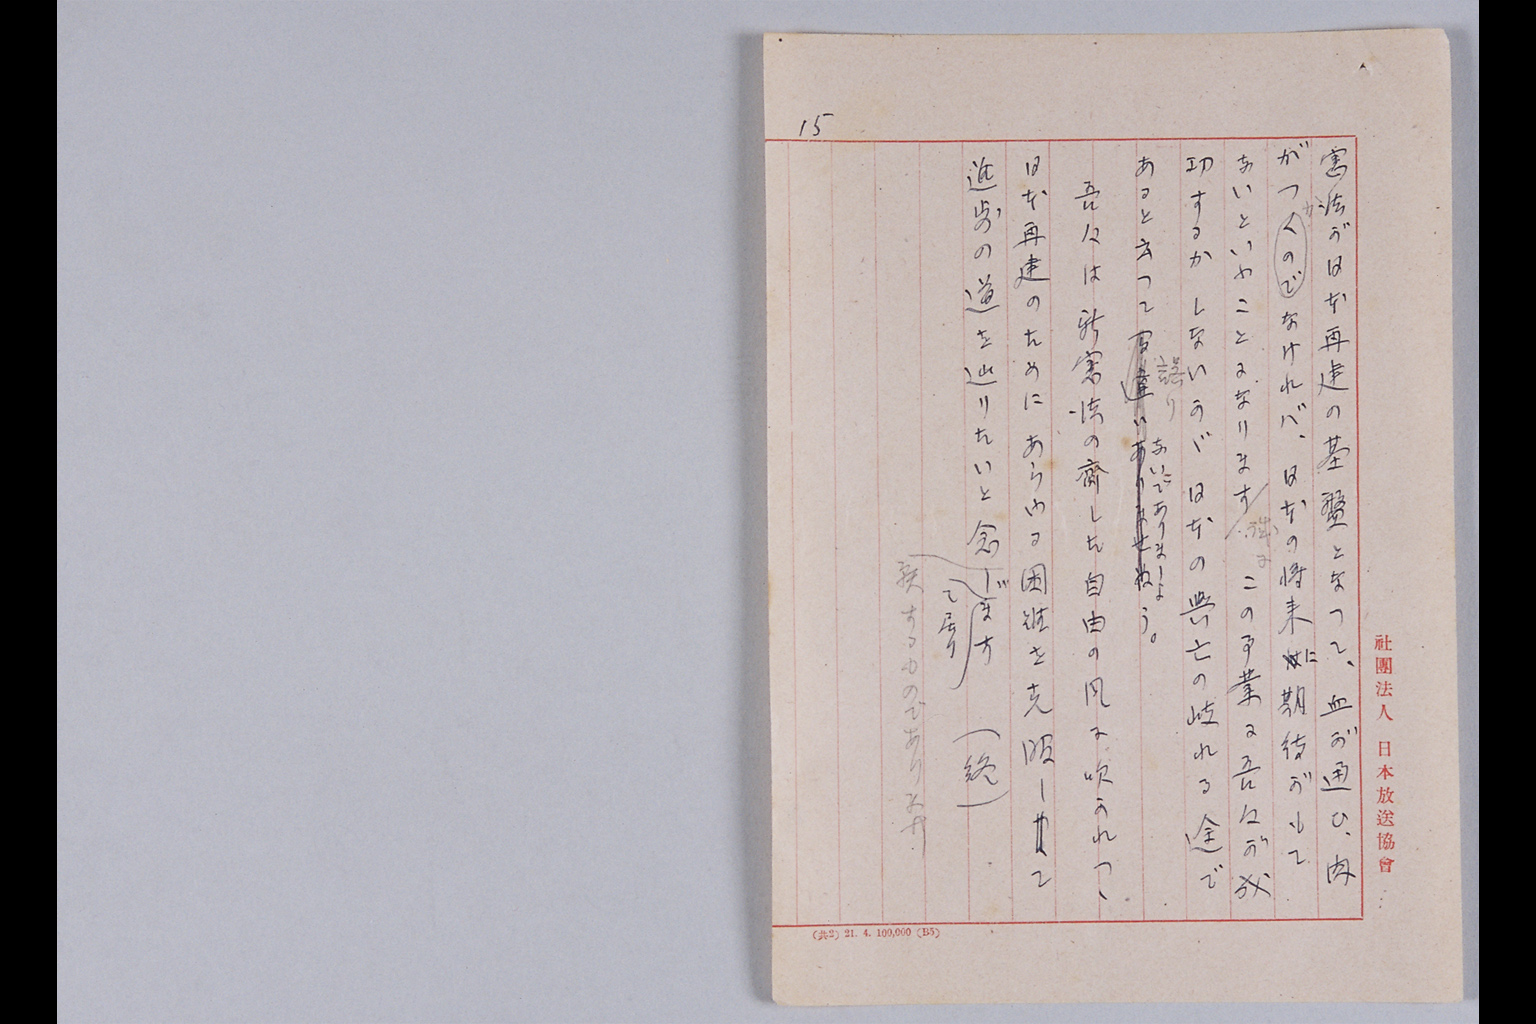 15
憲法が日本再建の基盤となつて、血が通ひ、肉
がつくのでなければ、日本の将来に期待がもて
か
ないといふことになります
この事業に吾々が成
功するかしないかが日本の興亡の岐れる途で
あると云つて間違いありませぬ う。
誤り
ないでありましよ
吾々は新憲法の齎した自由の風に吹かれつゝ
日本再建のためにあらゆる困難を克服して
進歩の道を辿りたいと念じます (終)
て居り
するものであります
社團法人 日本放送協會
(共2) 21. 4. 100,000 (B5)